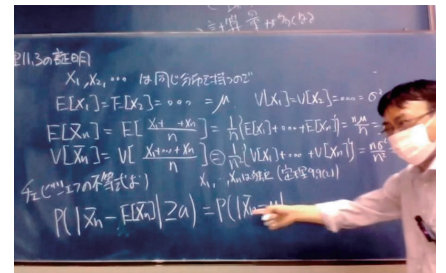 計算量が多くなる
11.3の証明
X₁, X₂, ⋯ は同じ分布に従うので
E[X₁] = E[X₂] = ⋯ = μ   V[X₁] = V[X₂] = ⋯ = σ²
E[X̄ₙ] = E[ (X₁+⋯+Xₙ)/n ] = 1/n {E[X₁]+⋯+E[Xₙ]} = nμ/n =
V[X̄ₙ] = V[ (X₁+⋯+Xₙ)/n ] = 1/n² {V[X₁]+⋯+V[Xₙ]} = nσ²/n²
X₁, Xₙは独立 (定理
チェビシェフの不等式より
P(|X̄ₙ − E[X̄ₙ]| ≥ a) = P(|X̄ₙ − μ|